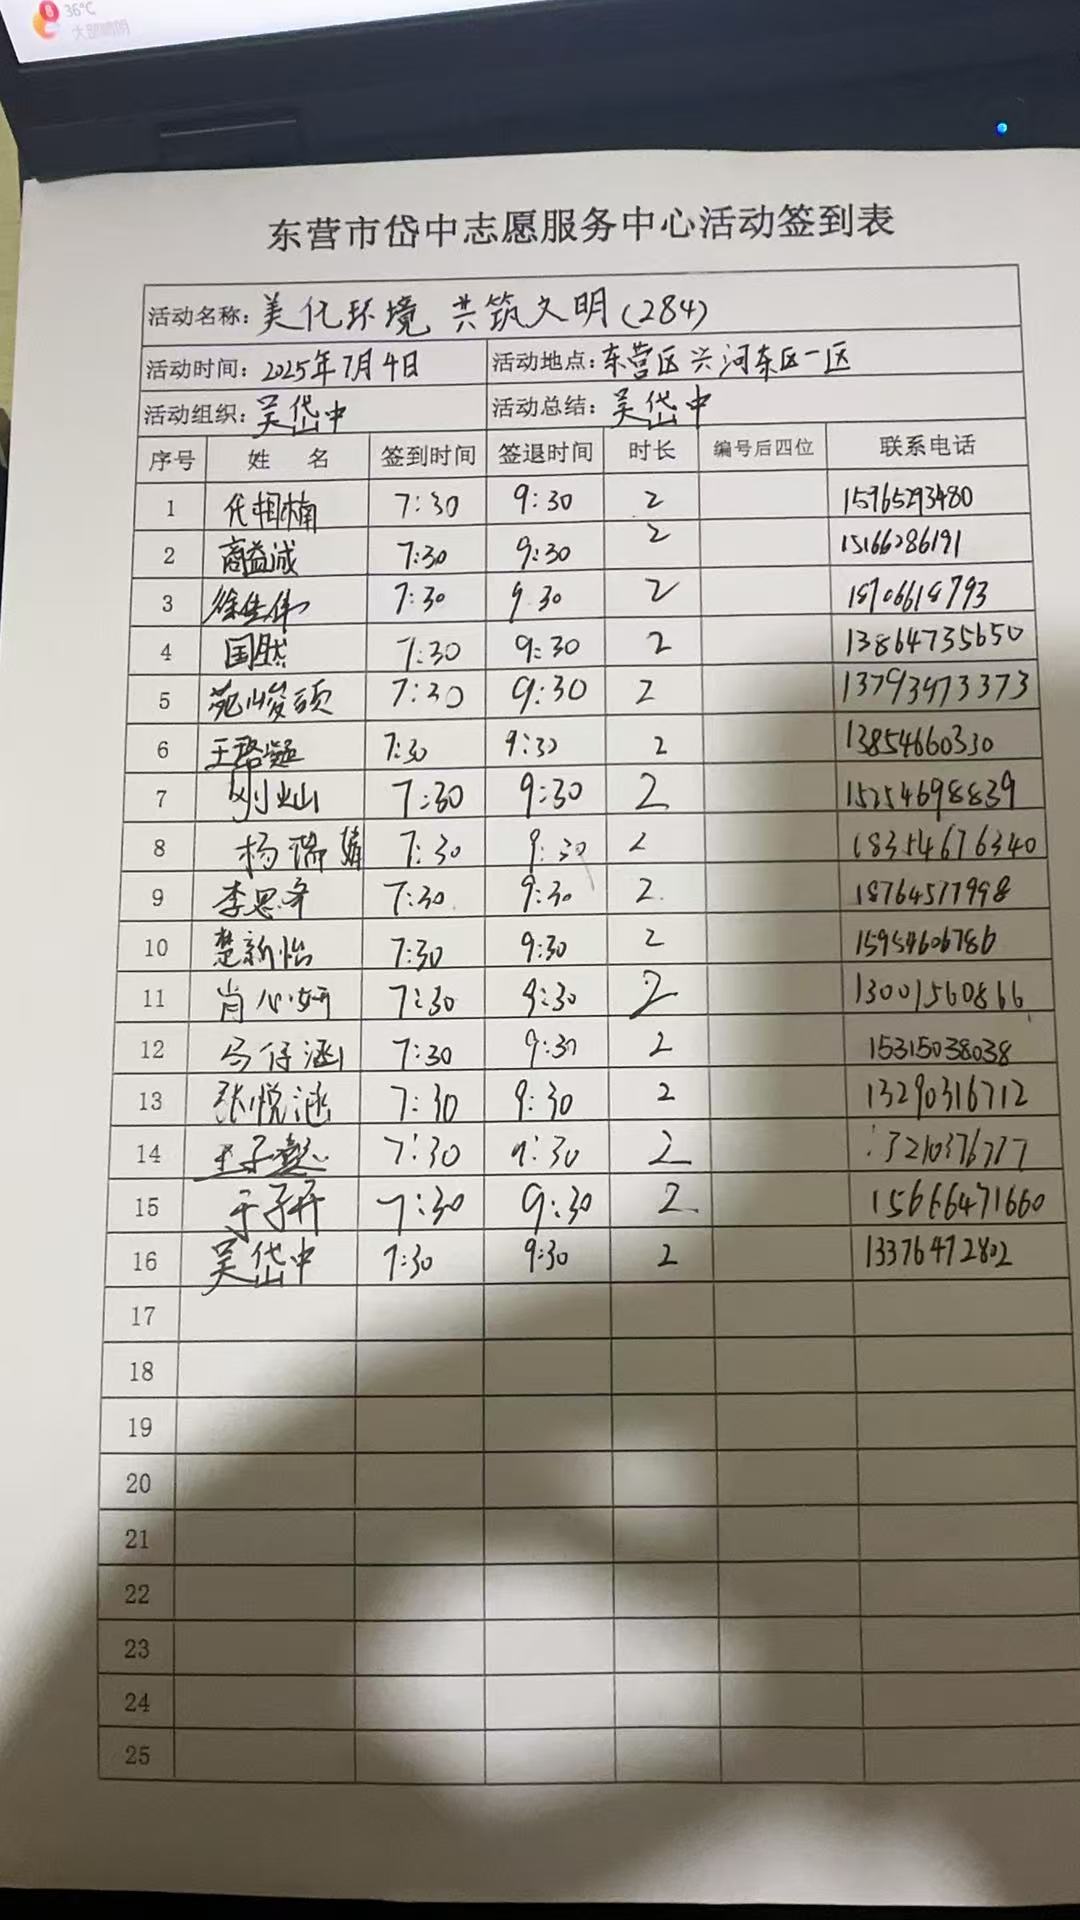 36°C
大部晴朗
东营市岱中志愿服务中心活动签到表
活动名称: 美化环境 共筑文明(284)
活动时间: 2025年7月4日 活动地点: 东营区兴河东区一区
活动组织: 吴岱中 活动总结: 吴岱中
序号 姓 名 签到时间 签退时间 时长 编号后四位 联系电话
1 代相楠 7:30 9:30 2 15965293480
2 商益诚 7:30 9:30 2 15166286191
3 徐 7:30 9 30 2
4 国然 7:30 9:30 2 13864735650
5 苑峻硕 7:30 9:30 2 13793473373
6 王路凝 7:30 9:30 2 13854660330
7 7:30 9:30 2 15254698839
8 杨瑞婧 7:30 9:30 2 18354676340
9 李思 7:30 9:30 2. 18764577998
10 楚新怡 7:30 9:30 2 15954606786
11 肖心妍 7:30 9:30 2 13001560866
12 马仔涵 7:30 9:30 2 15315038038
13 张悦涵 7:30 9:30 2 13290316712
14 王子懿 7:30 9:30 2
15 于子开 7:30 9:30 2 15666471660
16 吴岱中 7:30 9:30 2 13376472802
17
18
19
20
21
22
23
24
25